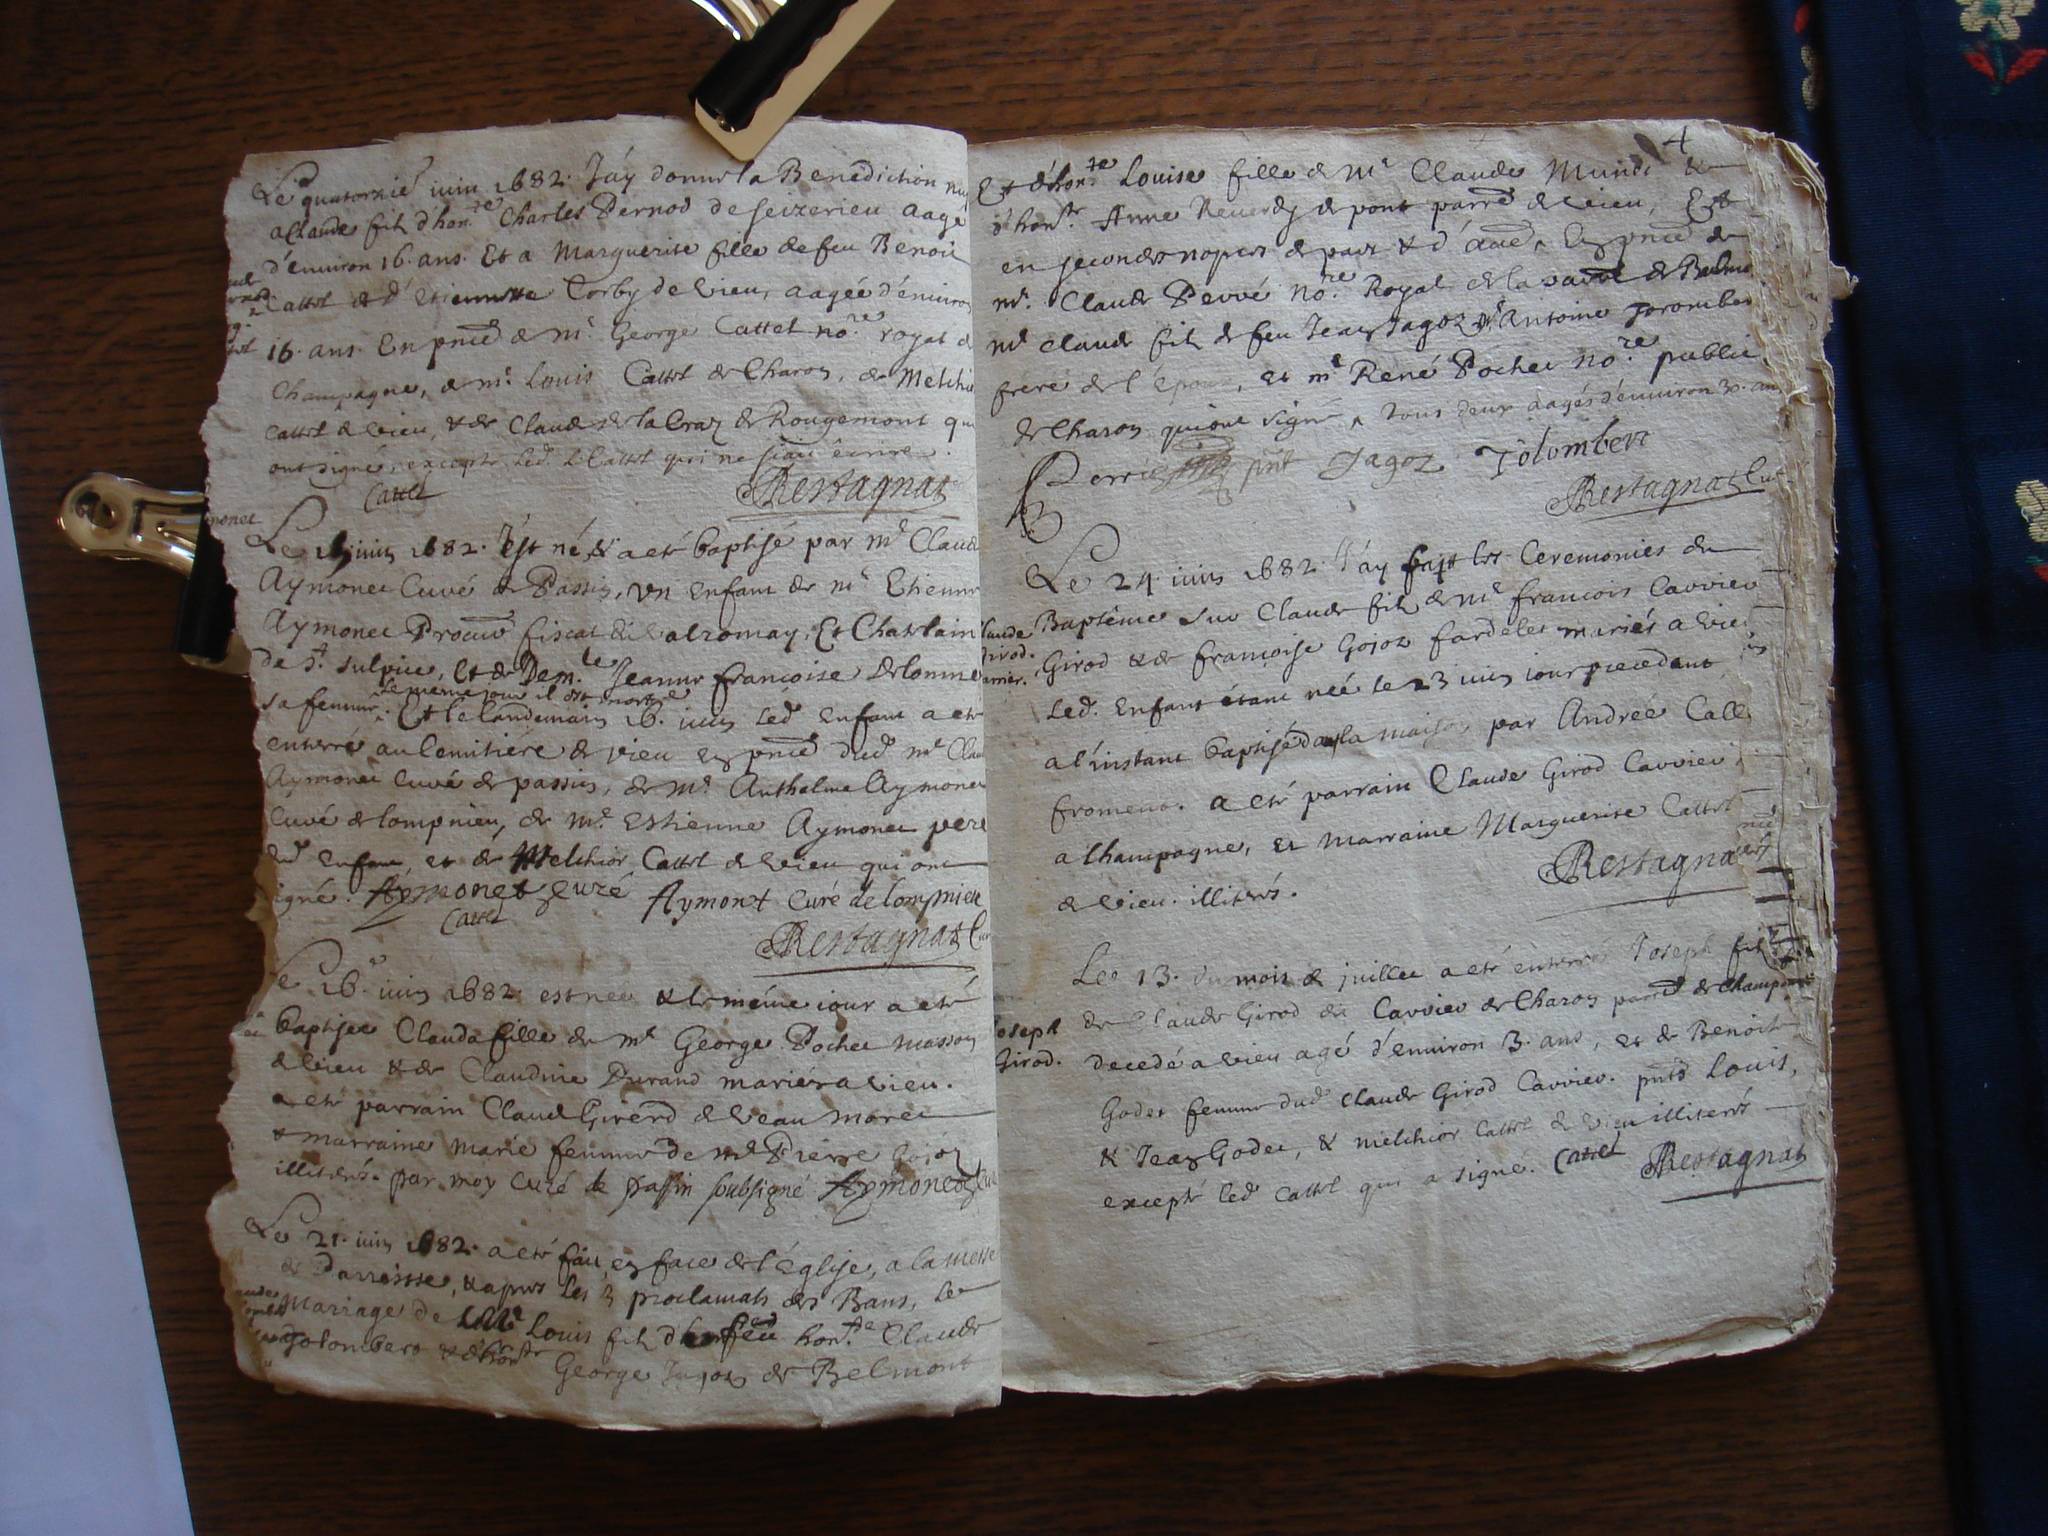 Le quatorzie juin 1682. J'ay donné la Benediction nup
a Claude fils d'hon.re Charles Pernod de seizerieu aagé
d'environ 16. ans. Et a Marguerite fille de feu Benoit
Cattel & d'Etiennette Corby de vieu, aagée d'environ
16. ans. En pnce de Mr. George Cattel no.re royal de
Champagne, de Mr. Louis Cattel de Charon, de Melchior
Cattel de vieu, & de Claude de la Craz de Rougemont qui
ont signé, excepté led. Cattel qui ne sçait écrire.
Cattel Restagnat
Le juin 1682. Est né, & a eté baptisé par Mr Claude
Aymonet Curé de Passin, un Enfant de Mr Etienne
Aymonet Procur fiscal de valromay, Et Chatelain
de St. Sulpice, Et de Dem.le Jeanne francoise
le meme jour il est mort
sa femme. Et le landemain 16. juin led Enfant a eté
enterré au Cemitiére de vieu en pnce dud Mr Claude
Aymonet Curé de passin, de Mr. Anthelme Aymonet
Curé de lompnieu, de Mr. Estienne Aymonet pere
dud Enfant, et de Melchior Cattel de vieu qui ont
signé. Aymonet curé Aymonet Curé de lompnieu
Cattel
Restagnat Cur
Le 16. juin 1682 est née & le méme jour a eté
baptisée Clauda fille de Mr George Pochet masson
de vieu & de Claudine Durand mariés a vieu.
a eté parrain Claude Girerd de
& marraine Marie femme de Mr Pierre Gojoz
illiterés. par moy Curé de passin soubsigné Aymonet
Le 21. juin 1682. a eté fait en face de l'Eglise, a la messe
de Parroisse, & apres les 3 proclamats des Bans, le
Mariage de Louis fils feu hon.te Claude
Jolombert & d'hon.te George Jagoz de Belmont
4
Et d'hon.te Louise fille de Mr Claude
d'hon.te Anne Reverdy de pont parre de vieu, Et
en secondes nopces de part & d'autre, En pnce de
Mr. Claude no.re Royal de la
Mr Claude fils de feu Jean Jagoz Mr Antoine Jorombert
frere de l'Epoux, et Mr René Pochet no.re public
de Charon qui ont signé, tous deux aagés d'environ 30. ans
pnt Jagoz Jolombert
Restagnat Cur
Le 24. juin 1682. J'ay fait les Ceremonies du
Claude Baptême sur Claude fils de Mr francois Carrier
Girod. Girod & de francoise Gojoz fardelet mariés a vieu
Carrier. led. Enfant étant née le 23 juin jour precedent
a l'instant baptisé dans la maison par Andrée
froment. a eté parrain Claude Girod Carrier
a Champagne, et marraine Marguerite Cattel
de vieu. illiterés. Restagnat
Le 13. du mois de juillet a eté enterré Joseph fils
Joseph de Claude Girod dit Carrier de Charon parre de Champagne
Girod. decedé a vieu agé d'environ 3. ans, et de Benoite
Godet femme dud Claude Girod Carrier. pnts Louis,
& Jean Godet, & Melchior Cattel de vieu illiterés
excepté led Cattel qui a signé. Cattel Restagnat